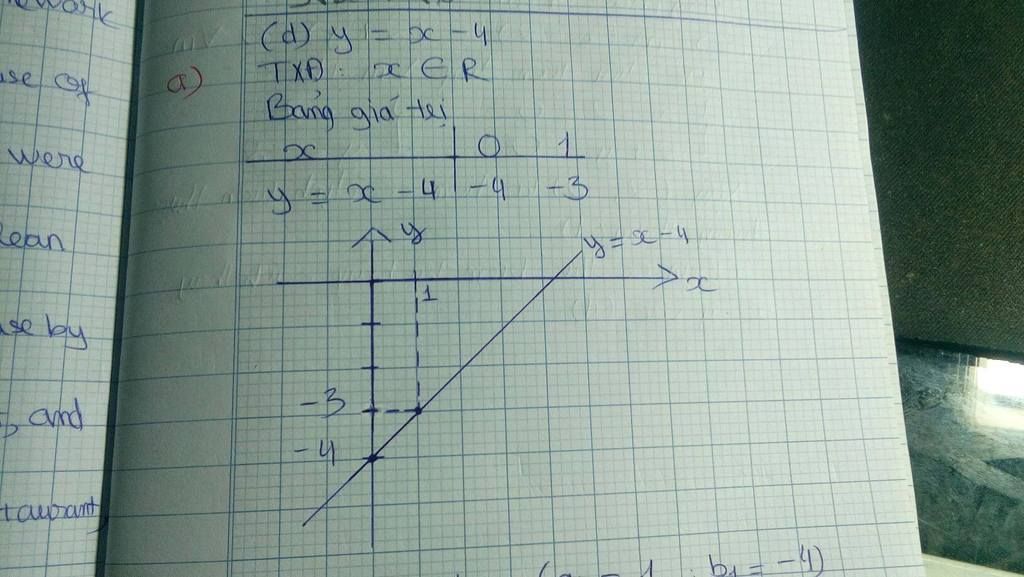 work
use of
were
lean
use by
, and
taurant
(d) y = x - 4
a) TXĐ: x ∈ R
Bảng giá trị
x | 0 1
y = x - 4 | -4 -3
y
y = x - 4
x
1
-3
-4
= 1 ; b₁ = -4)